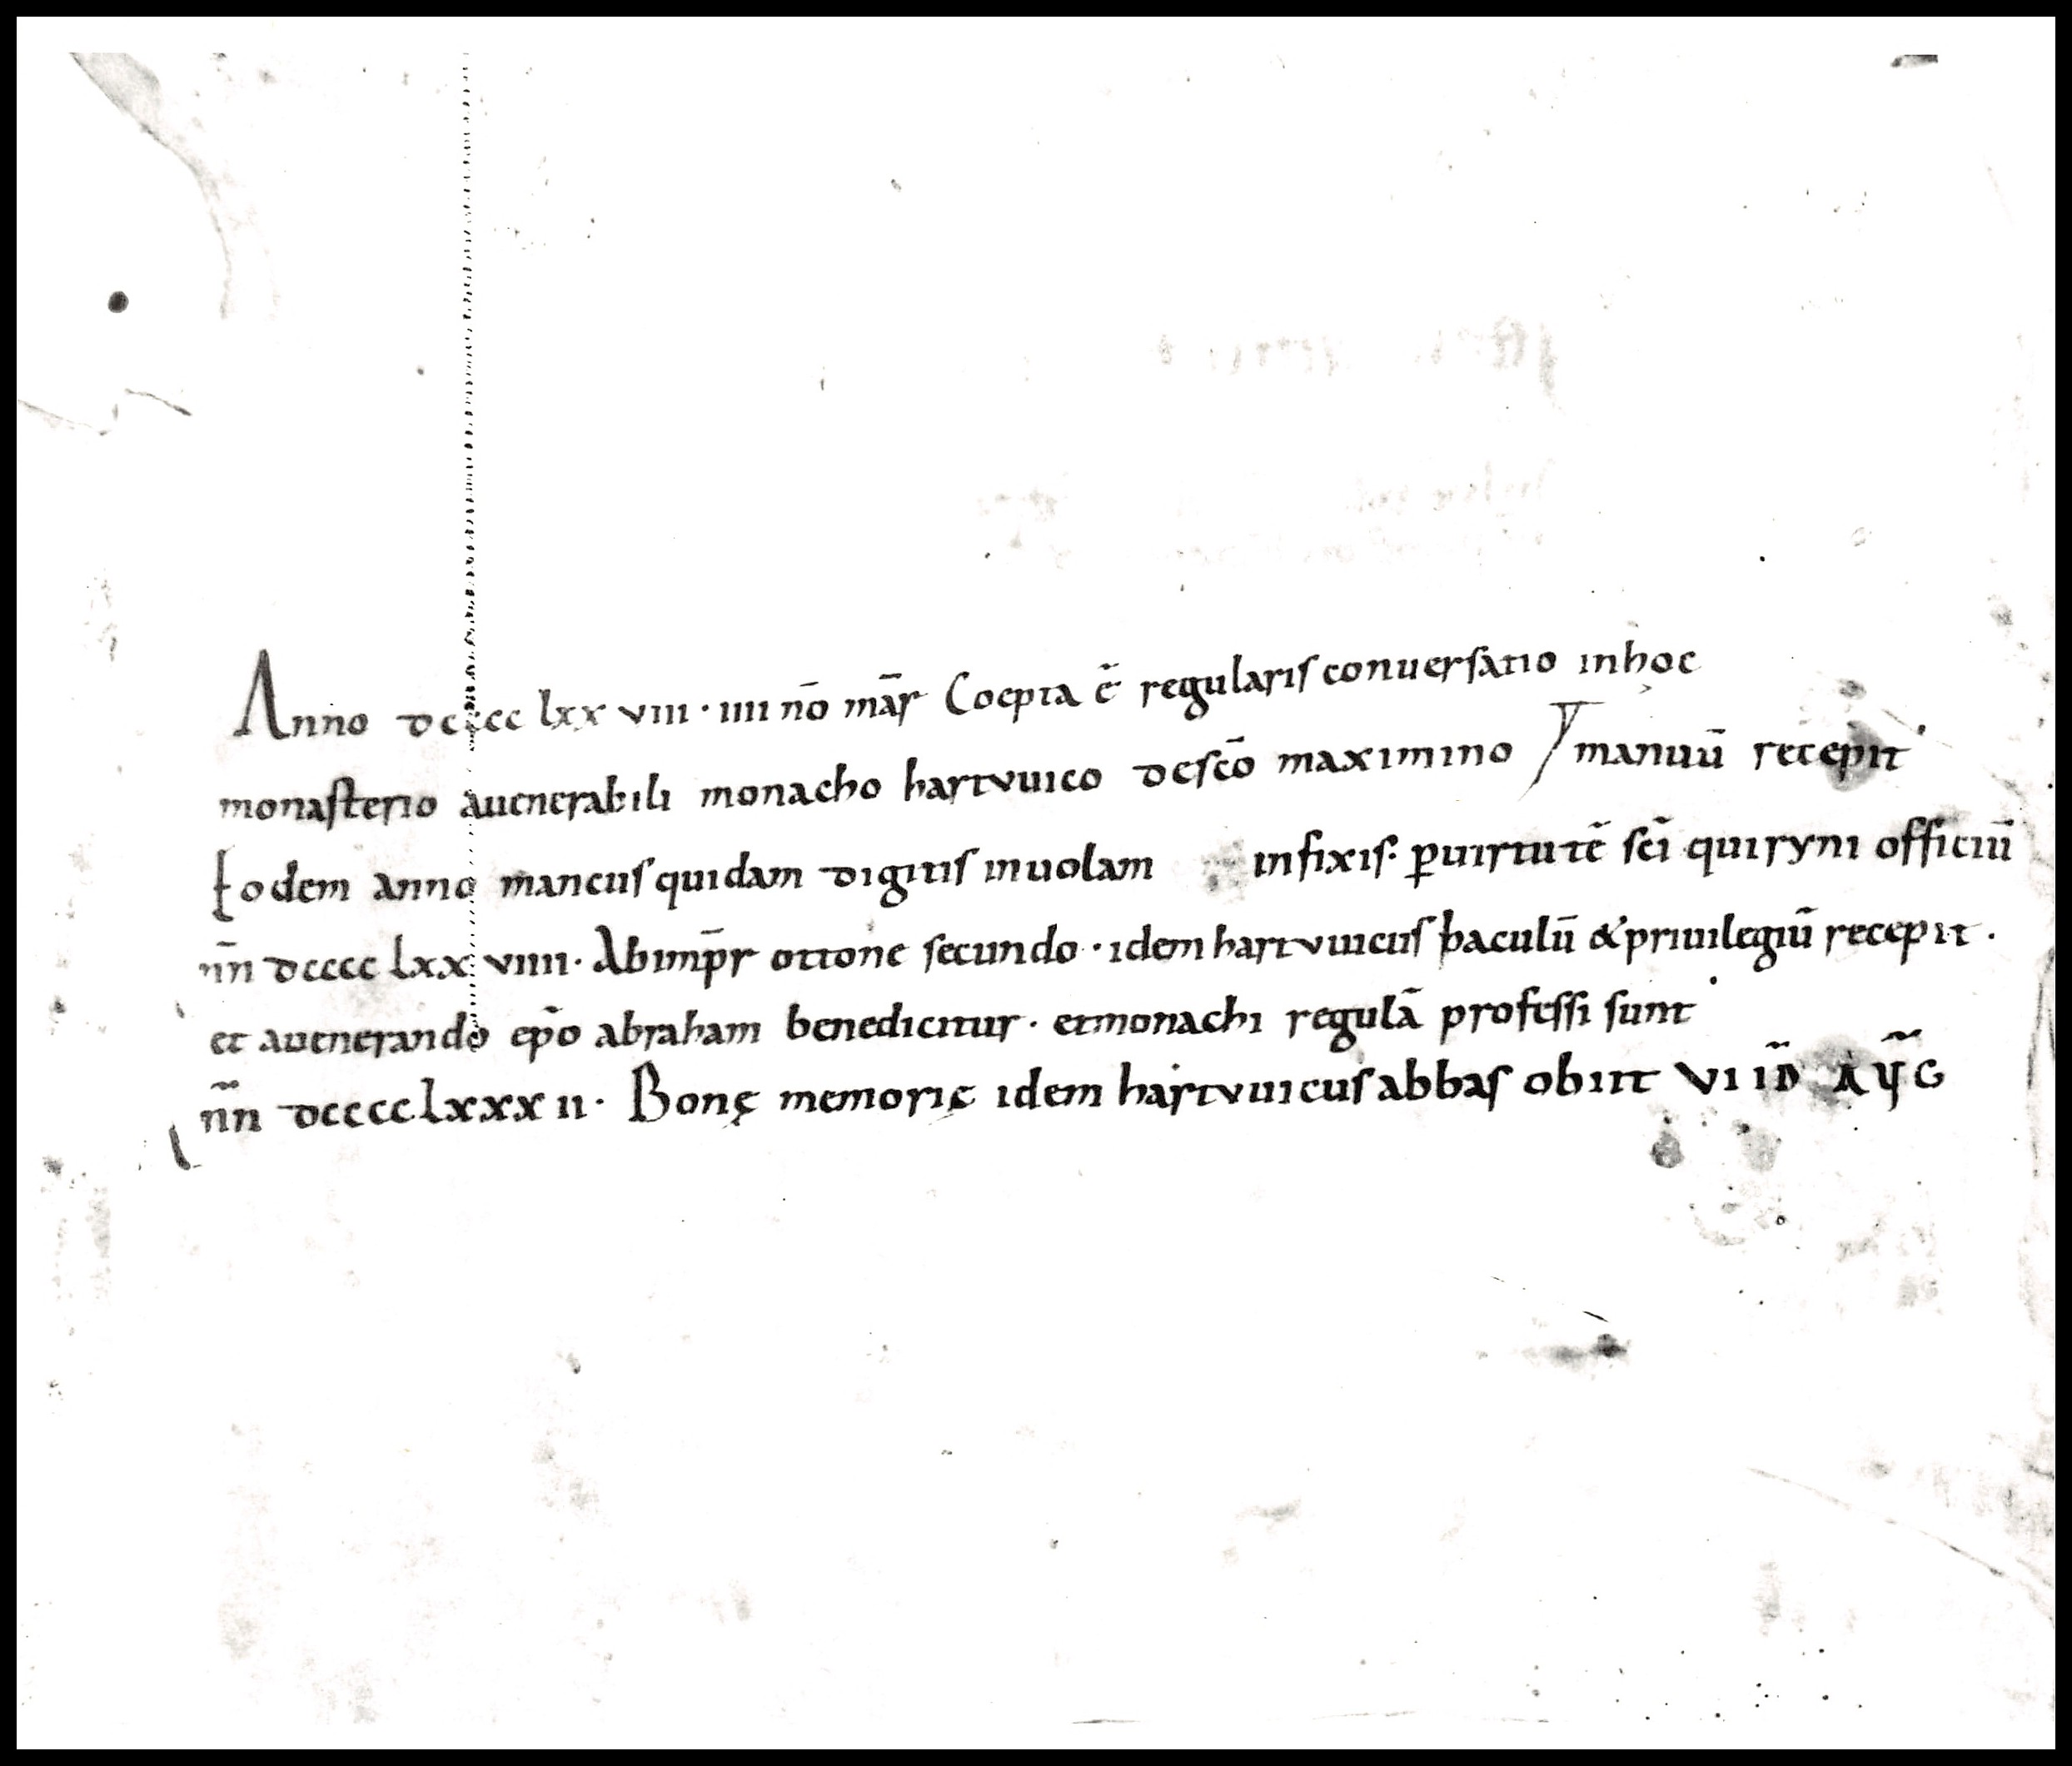 Anno dcccc lxx viii · iiii nō mār Coepta ē regularis conuersatio inhoc
monasterio auenerabili monacho hartvuico descō maximino / manuū recepit
Eodem anno mancus quidam digitis inuolam infixis · ꝑuirtutē scī quiryni officiū
nn̄ dcccc lxx viiii · Abimp̄r ottone secundo · idem hartvuicus baculū & priuilegiū recepit ·
et auenerando ep̄o abraham benedicitur · etmonachi regulā professi sunt
nn̄ dcccc lxxx ii · Bonę memorię idem hartvuicus abbas obiit VI ID̄ AV̄G